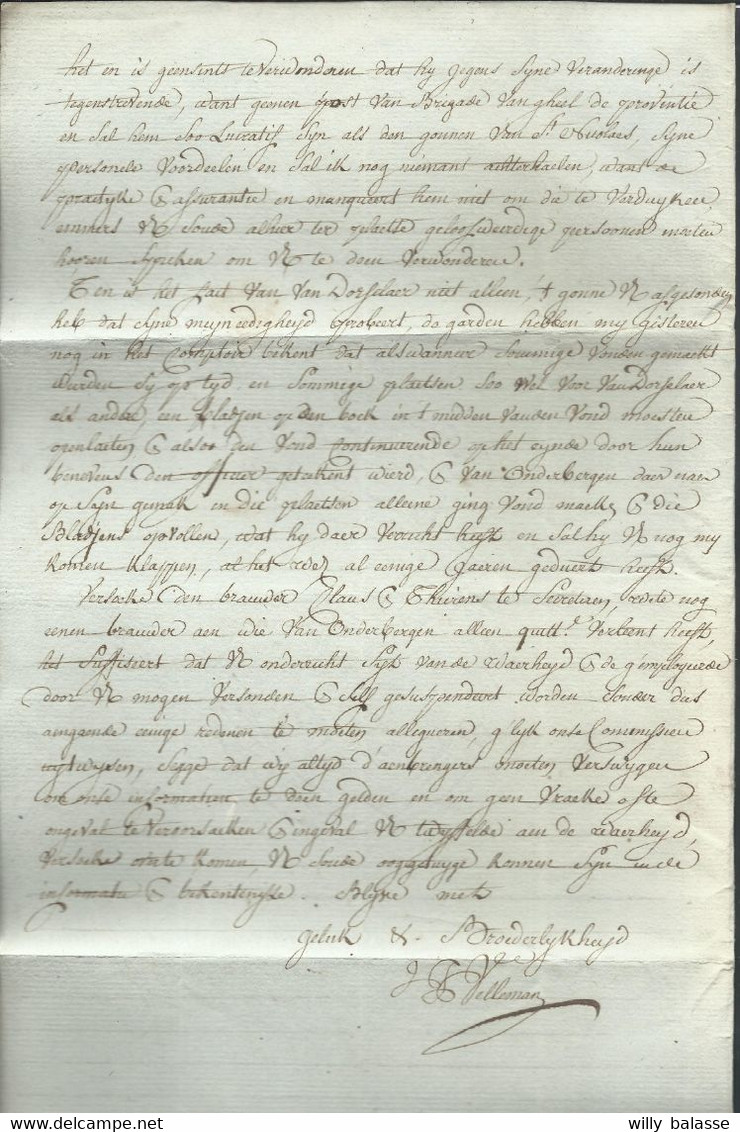 het en is geensints te verwonderen dat hy jegens syne veranderinge is
tegenstrevende, want geenen post van Brigade van gheel de provintie
en sal hem soo lucratif syn als den gonnen van St. Nicolaes, syne
personele voordeelen en sal ik nog niemant achterhaelen, want de
practyke & assurantie en manqueert hem niet om die te verduyken
emmers U soude alhier ter plaetse geloofweerdige persoonen moeten
hooren spreken om U te doen verwonderen.
T'en is het fait van Van Dorselaer niet alleen, 't gonne U afgesonden
heb dat syne meyneedigheyd probeert, de garden hebben my gisteren
nog in het Comptoir bekent dat alswanneer sommige ronden gemaekt
wierden sy op tyd en sommige plaetsen soo wel voor Van Dorselaer
als andere, een bladjen op den boek in 't midden van den rond moesten
openlaeten & alsoo den rond continuerende op het eynde door hun
benevens den officier geteekent wierd, & Van Onderbergen daer naer
op syn gemak en die plaetsen alleene ging rond maeken & die
Bladjens opvollen, wat hy daer verricht heeft en sal hy U nog my
komen klappen, al het welk al eenige jaeren geduert heeft.
Versoeke den brauwer Claus & Thirens te Sevecten, wete nog
eenen brauwer aen wie Van Onderbergen alleen quitt.e verleent heeft,
het suffiseert dat U onderrecht syt van de waerheyd & de g'employeerde
door U mogen versonden & self gesuspendeert worden sonder dies
aengaende eenige redenen te moeten allegueren, g'lyk onse Commissien
uytwysen, segge dat wy altyd d'aenbrengers moeten verswygen
om onse informatien te doen gelden en om geen vraeke ofte
ongeval te veroorsaeken & ingeval U twyffelde aen de waerheyd,
versoeke om te komen, U soude ooggetuyge konnen syn in de
informatie & bekentenisse. Blyve met
Geluk & Broederlykheyd
J Velleman
willy balasse